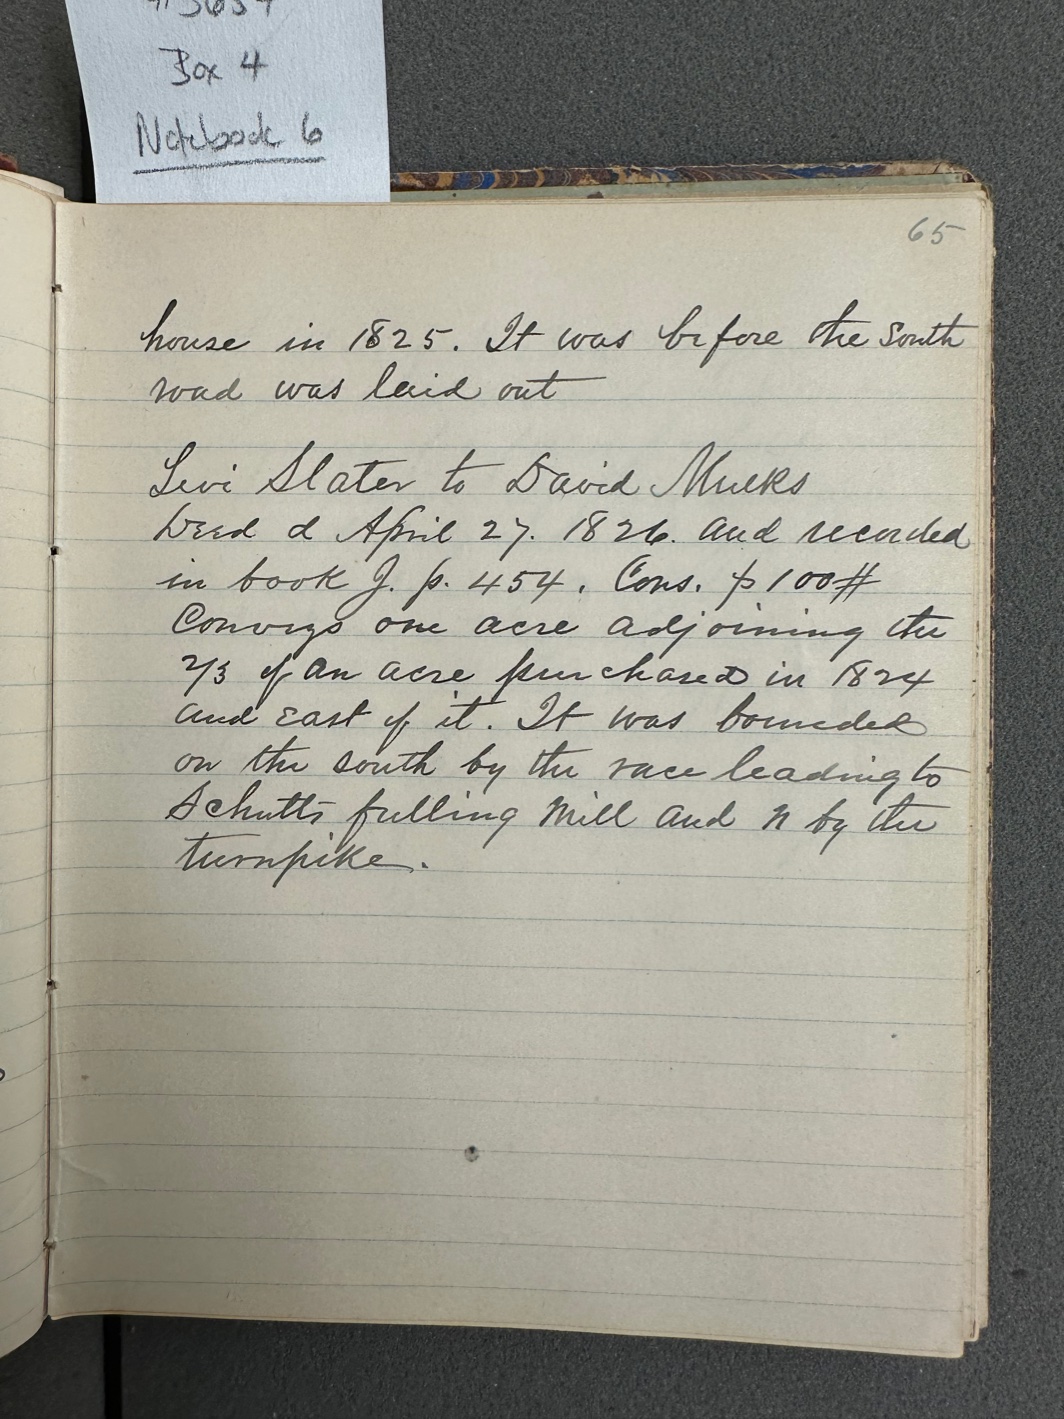 Box 4
Notebook 6
65
house in 1825. It was before the South
road was laid out
Levi Slater to David Mulks
Deed d April 27. 1826. and recorded
in book J. p. 454. Cons. $100#
Conveys one acre adjoining the
2/3 of an acre purchased in 1824
and East of it. It was bounded
on the south by the race leading to
Schutts fulling Mill and N by the
turnpike.